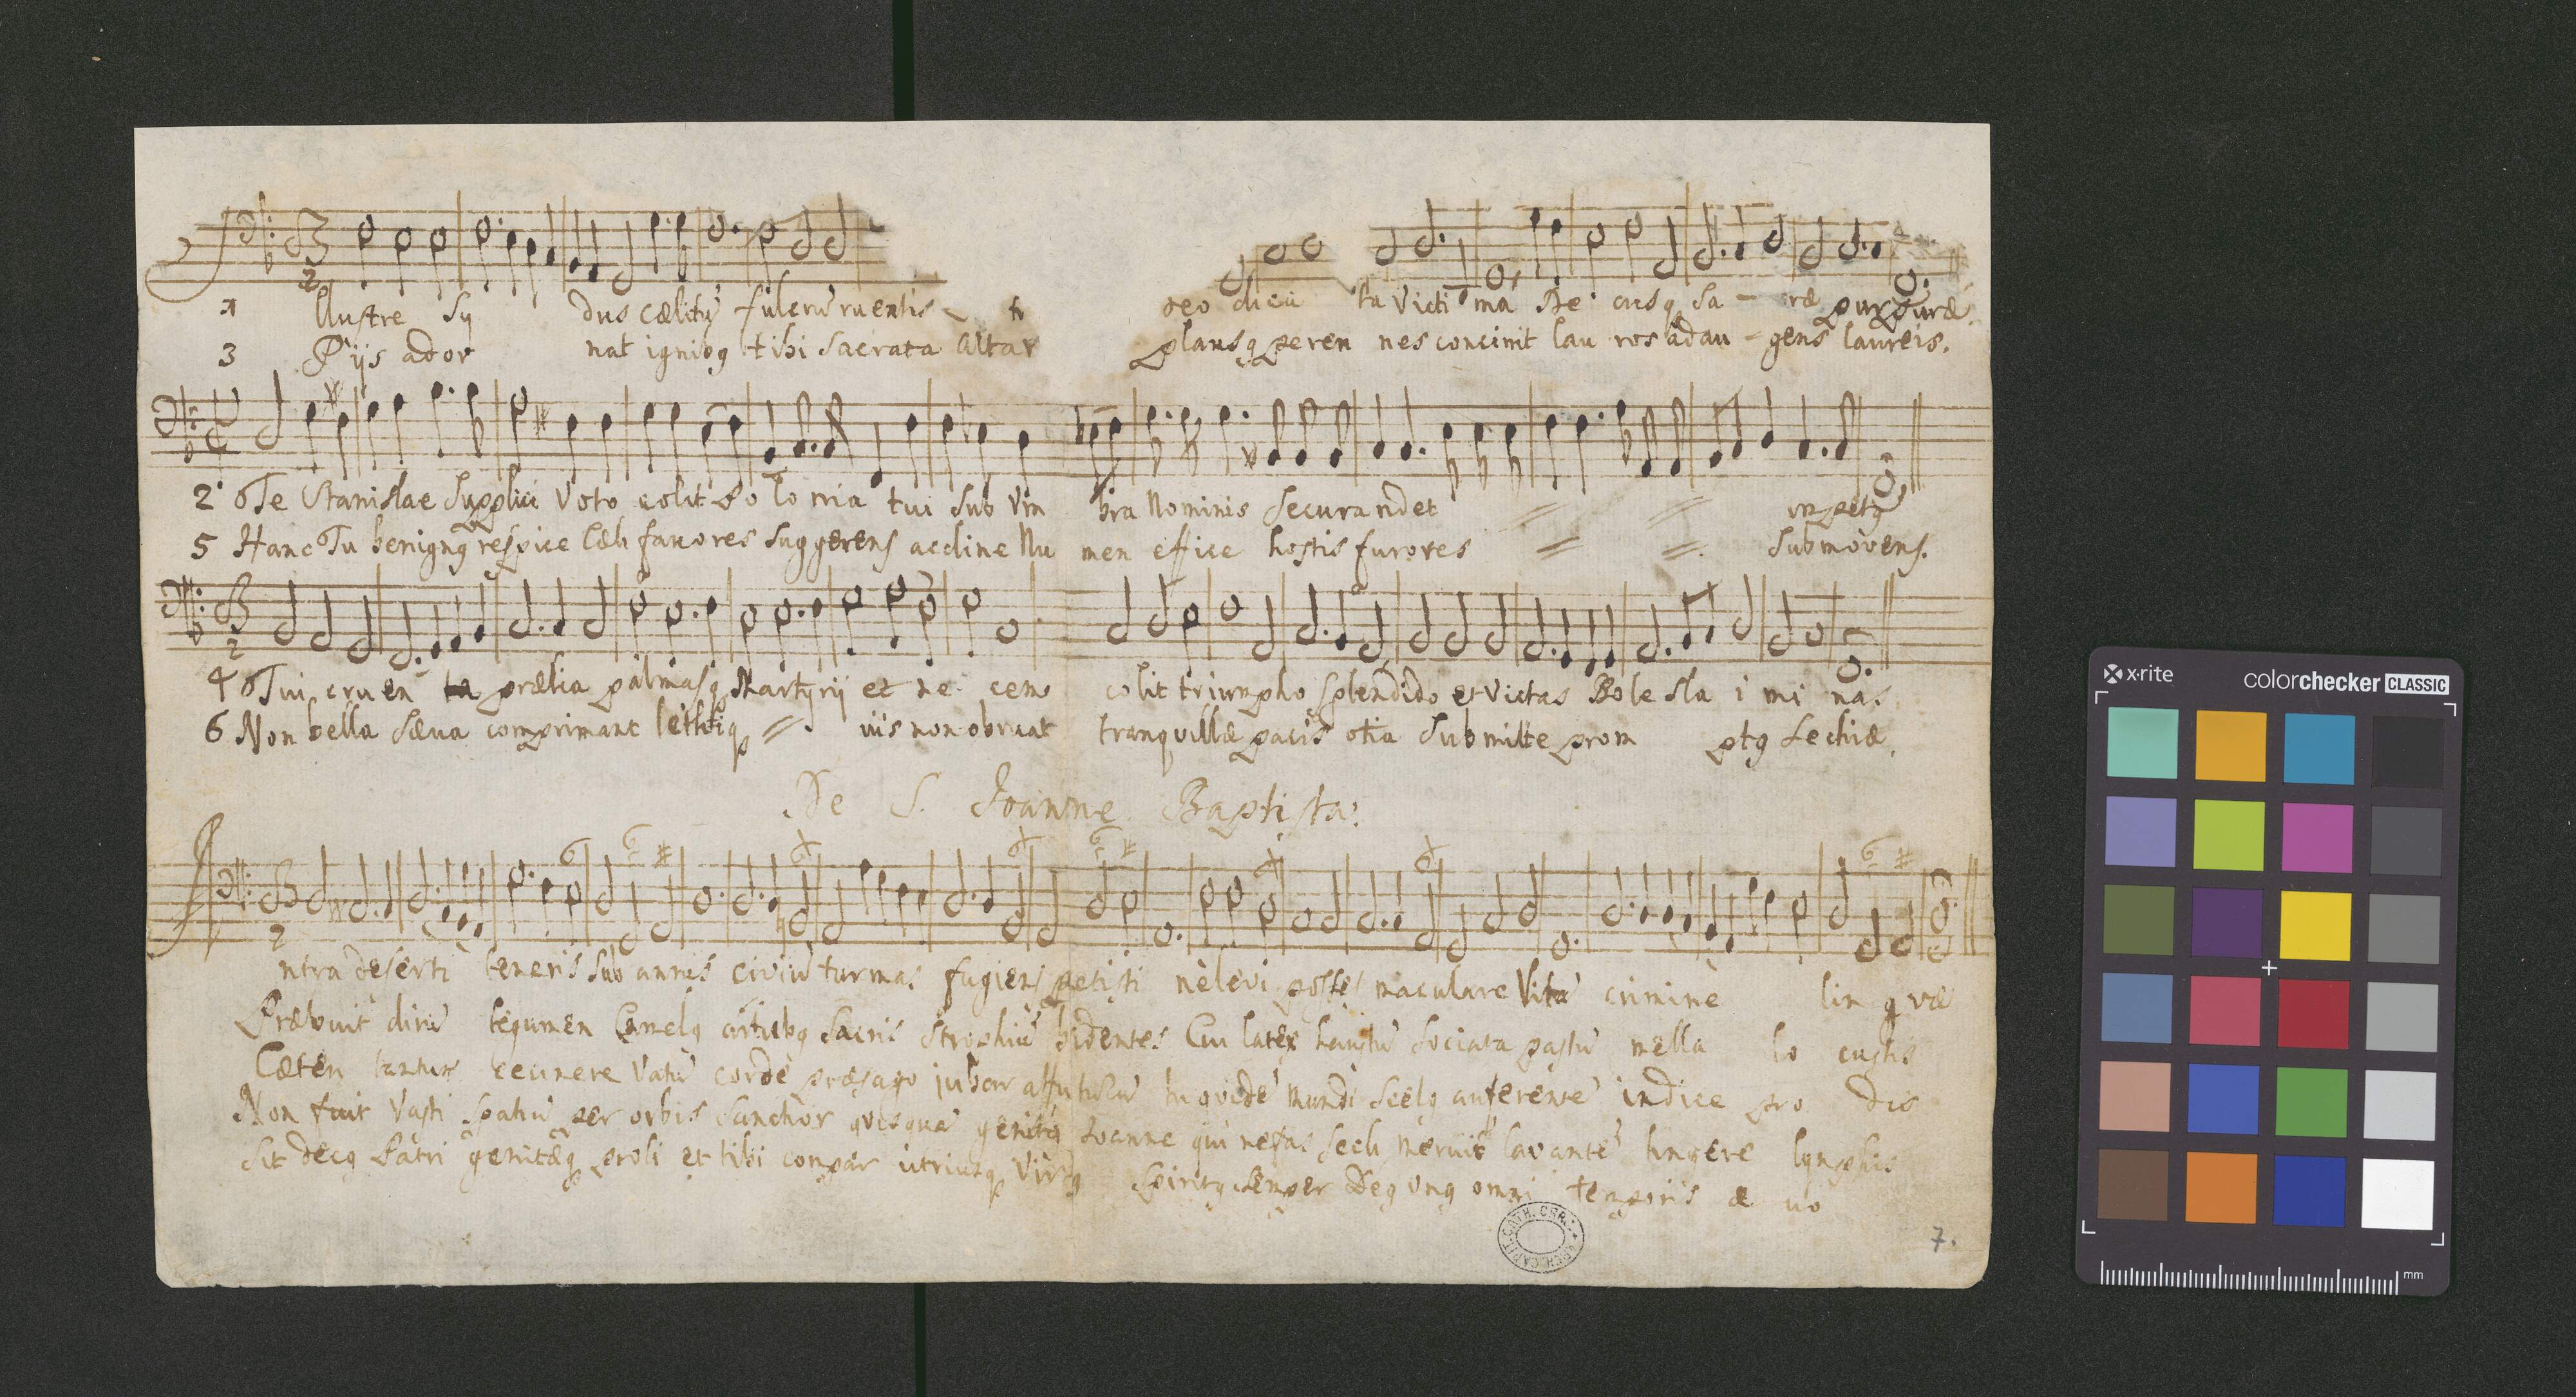 1 Illustre Sy dus cælitū fulcrū ruentis deo dica ta Victi ma De cusq Sa - ræ purpuræ
3 Piis ador nat ignibq tibi Sacrata Altar plausq peren nes concinit lau ros adau - gens laureis.
2 Te Stanislae Supplici Voto colit Po lo nia tui Sub Vm bra Nominis Secura ridet impetq
5 Hanc Tu benignq respice Cæli favores Suggerens accline Nu men effice hostis furores Submovens.
4 Tui cruen ta prælia palmasq Martyrij et ne cem colit triumpho Splendido et Victas Bole Sla i mi nas
6 Non bella Sæva comprimant lethiq viis non obruat tranquillæ pacis otia Submitte prom ptq Lechiæ.
De S. Joanne Baptista.
Antra deserti teneris Sub annis civiū turmas fugiens petisti ne levi posses maculare Vitā crimine lin gvæ
Præbuit dirū tegumen Camelq artubq Sacris Strophiū bidentes Cui latex haustū Sociata pastū mella lo custis
Cæteri tantum cecinere Vatū corde præsago jubar affuturū tu qvidē mundi Scelq auferentē indice pro dis
Non fuit Vasti Spatiū per orbis Sanctior qvisquā genitq Joanne qui nefas Secli meruit lavantē tingere lymphis
Sit decq Patri genitæq proli et tibi compar utriusq Virtq Spiritq Semper Deq Unq omni temporis æ vo
7.
x·rite colorchecker CLASSIC
mm